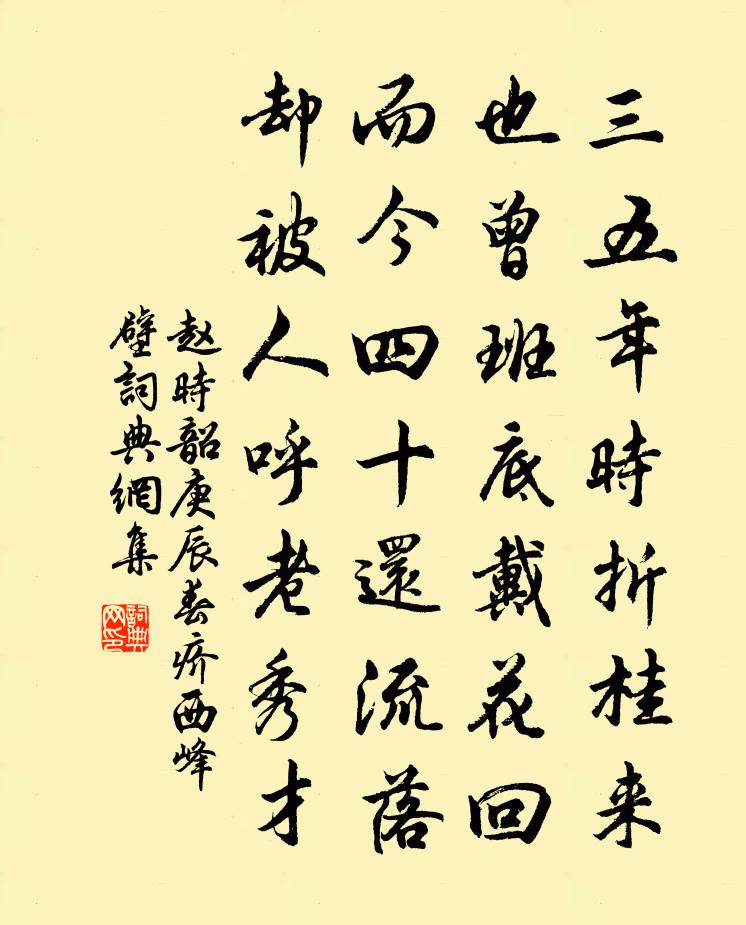 三五年時折桂来
也曾班底戴花回
而今四十還流落
却被人呼老秀才
赵時韶庚辰春疥西峰
壁詞典網集
詞典
网印